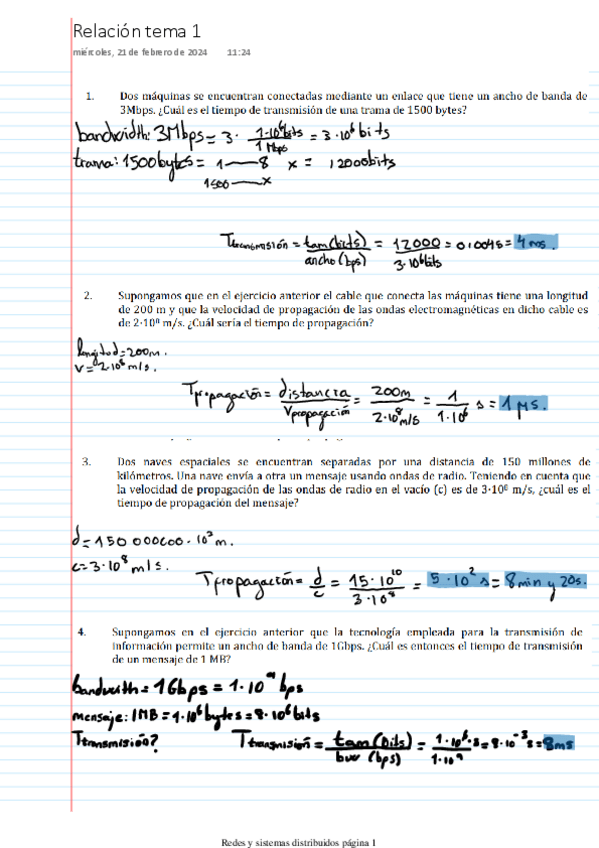 Relación tema 1
miércoles, 21 de febrero de 2024 11:24
1. Dos máquinas se encuentran conectadas mediante un enlace que tiene un ancho de banda de
3Mbps. ¿Cuál es el tiempo de transmisión de una trama de 1500 bytes?
bandwidth: 3Mbps = 3 · 1·10⁶bits / 1 Mbps = 3·10⁶ bits
trama: 1500bytes = 1 — 8 x = 12000bits
1500 — x
Ttransmisión = tam(bits) / ancho(bps) = 12000 / 3·10⁶bits = 0'004s = 4ms.
2. Supongamos que en el ejercicio anterior el cable que conecta las máquinas tiene una longitud
de 200 m y que la velocidad de propagación de las ondas electromagnéticas en dicho cable es
de 2·10⁸ m/s. ¿Cuál sería el tiempo de propagación?
longitud = 200m.
v = 2·10⁸ m/s.
Tpropagación = distancia / Vpropagación = 200m / 2·10⁸ m/s = 1 / 1·10⁶ s = 1 μs.
3. Dos naves espaciales se encuentran separadas por una distancia de 150 millones de
kilómetros. Una nave envía a otra un mensaje usando ondas de radio. Teniendo en cuenta que
la velocidad de propagación de las ondas de radio en el vacío (c) es de 3·10⁸ m/s, ¿cuál es el
tiempo de propagación del mensaje?
d = 150 000000 · 10³ m.
c = 3·10⁸ m/s.
Tpropagación = d / c = 15·10¹⁰ / 3·10⁸ = 5·10² s = 8min y 20s.
4. Supongamos en el ejercicio anterior que la tecnología empleada para la transmisión de
información permite un ancho de banda de 1Gbps. ¿Cuál es entonces el tiempo de transmisión
de un mensaje de 1 MB?
bandwith = 1Gbps = 1·10⁹ bps
mensaje: 1MB = 1·10⁶ bytes = 8·10⁶ bits
Ttransmisión? Ttransmisión = tam(bits) / bw (bps) = 1·10⁶·8 / 1·10⁹ = 8·10⁻³ s = 8ms
Redes y sistemas distribuidos página 1